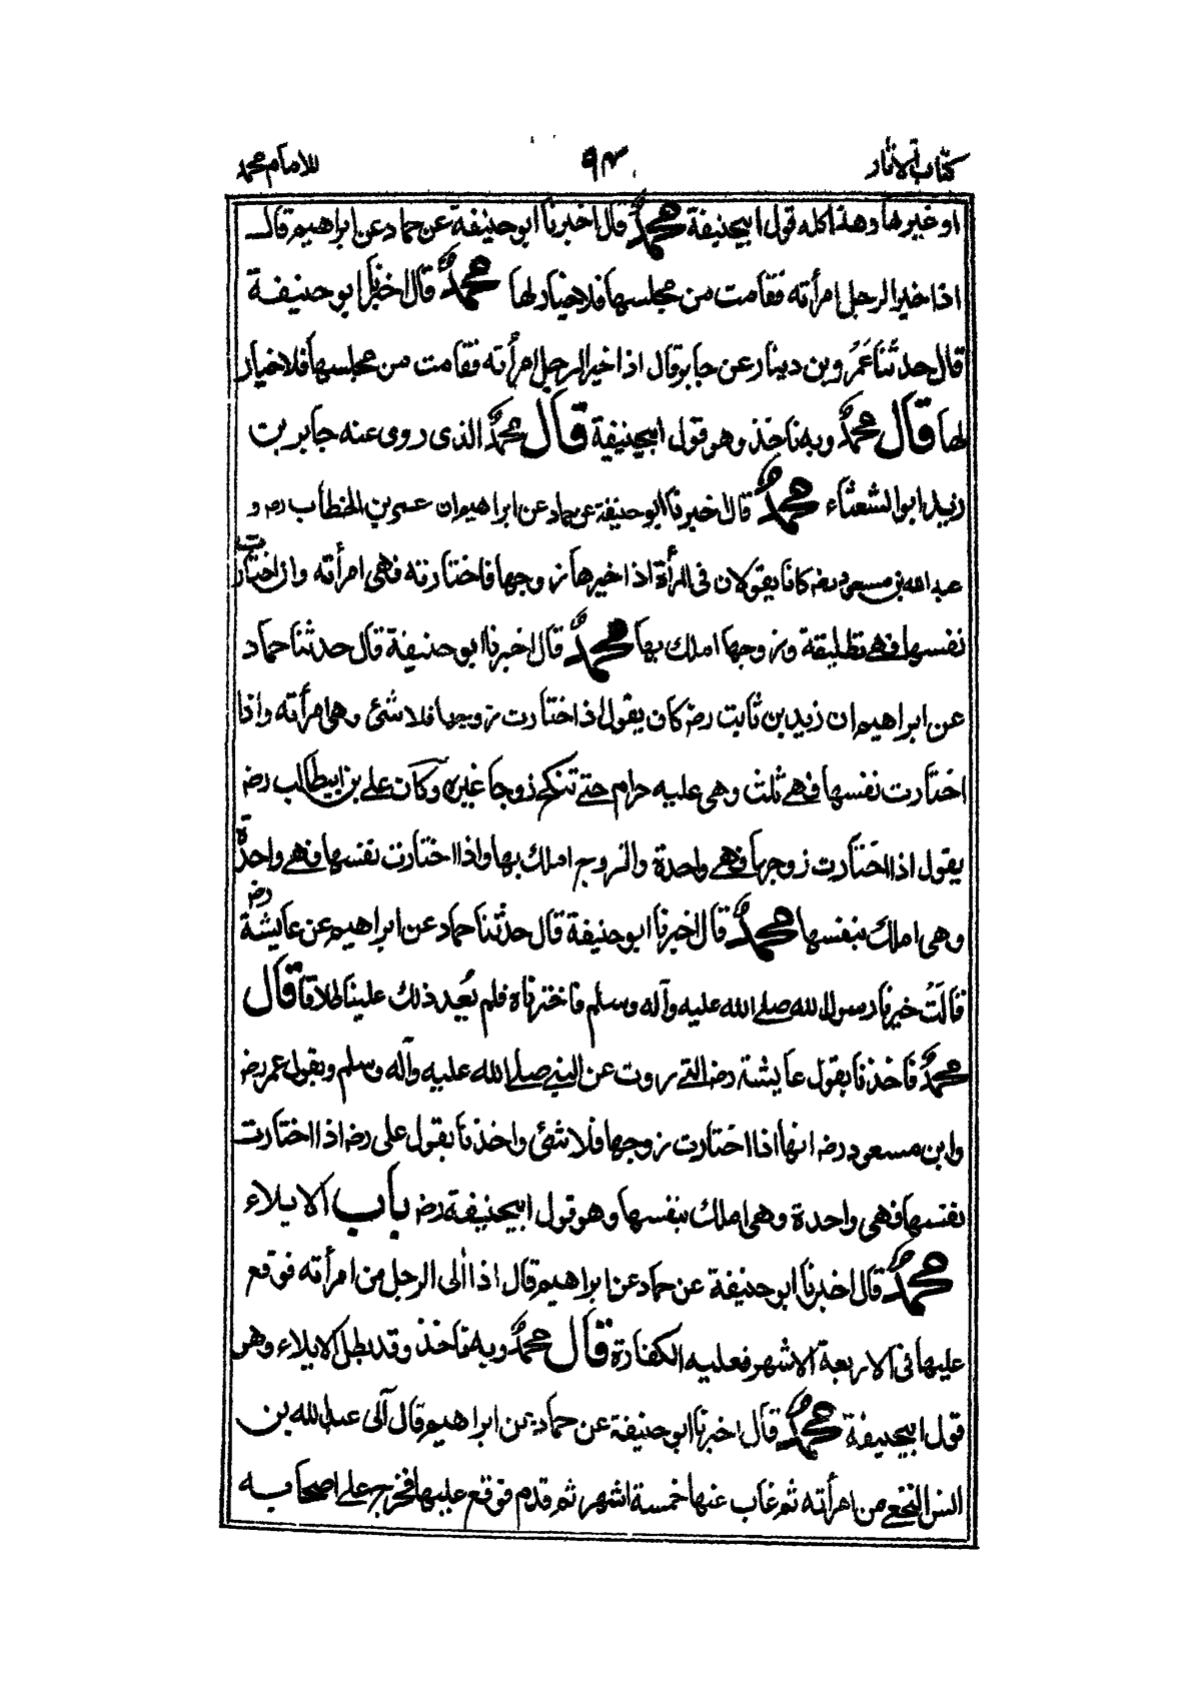 كتاب الآثار ٩٣ للامام محمد
او غيرها وهذا كله قول ابيحنيفة محمد قال اخبرنا ابو حنيفة عن حماد عن ابراهيم قال
اذا خير الرجل امرأته فقامت من مجلسها فلا خيار لها محمد قال اخبرنا ابو حنيفة
قال حدثنا عَمرُو بن دينار عن جابر قال اذا خير الرجل امرأته فقامت من مجلسها فلا خيار
لها قال محمد وبه ناخذ وهو قول ابيحنيفة قال محمد الذى روى عنه جابر بن
زيد ابو الشعثاء محمد قال اخبرنا ابو حنيفة عن حماد عن ابراهيم ان عمر بن الخطاب رضه و
عبد الله بن مسعود رضه كانا يقولان فى المرأة اذا خيرها زوجها فاختارته فهى امرأته وان اختارت
نفسها فهے تطليقة وزوجها املك بها محمد قال اخبرنا ابو حنيفة قال حدثنا حماد
عن ابراهيم ان زيد بن ثابت رضه كان يقول اذا اختارت زوجها فلا شئ وهى امرأته واذا
اختارت نفسها فهے ثلث وهى عليه حرام حتے تنكح زوجا غيره وكان علے بن ابيطالب رضه
يقول اذا اختارت زوجها فهے واحدة والزوج املك بها واذا اختارت نفسها فهے واحدة
وهى املك بنفسها محمد قال اخبرنا ابو حنيفة قال حدثنا حماد عن ابراهيم عن عايشة رضه
قالَتُ خيرنا رسول الله صلے الله عليه وآله وسلم فاخترناه فلم يُعد ذلك علينا طلاقا قال
محمد فاخذنا بقول عايشة رضه التے روت عن النبے صلے الله عليه وآله وسلم وبقول عمر رضه
وابن مسعود رضه انها اذا اختارت زوجها فلا شئ واخذنا بقول على رضه اذا اختارت
نفسها فهى واحدة وهى املك بنفسها وهو قول ابيحنيفة رضه باب الايلاء
محمد قال اخبرنا ابو حنيفة عن حماد عن ابراهيم قال اذا الٰى الرجل من امرأته فوقع
عليها فى الاربعة الاشهر فعليه الكفارة قال محمد وبه ناخذ وقد بطل الايلاء وهو
قول ابيحنيفة محمد قال اخبرنا ابو حنيفة عن حماد عن ابراهيم قال آلى عبد الله بن
انس النخعے من امرأته ثم غاب عنها خمسة اشهر ثم قدم فوقع عليها فخرج علے اصحابه